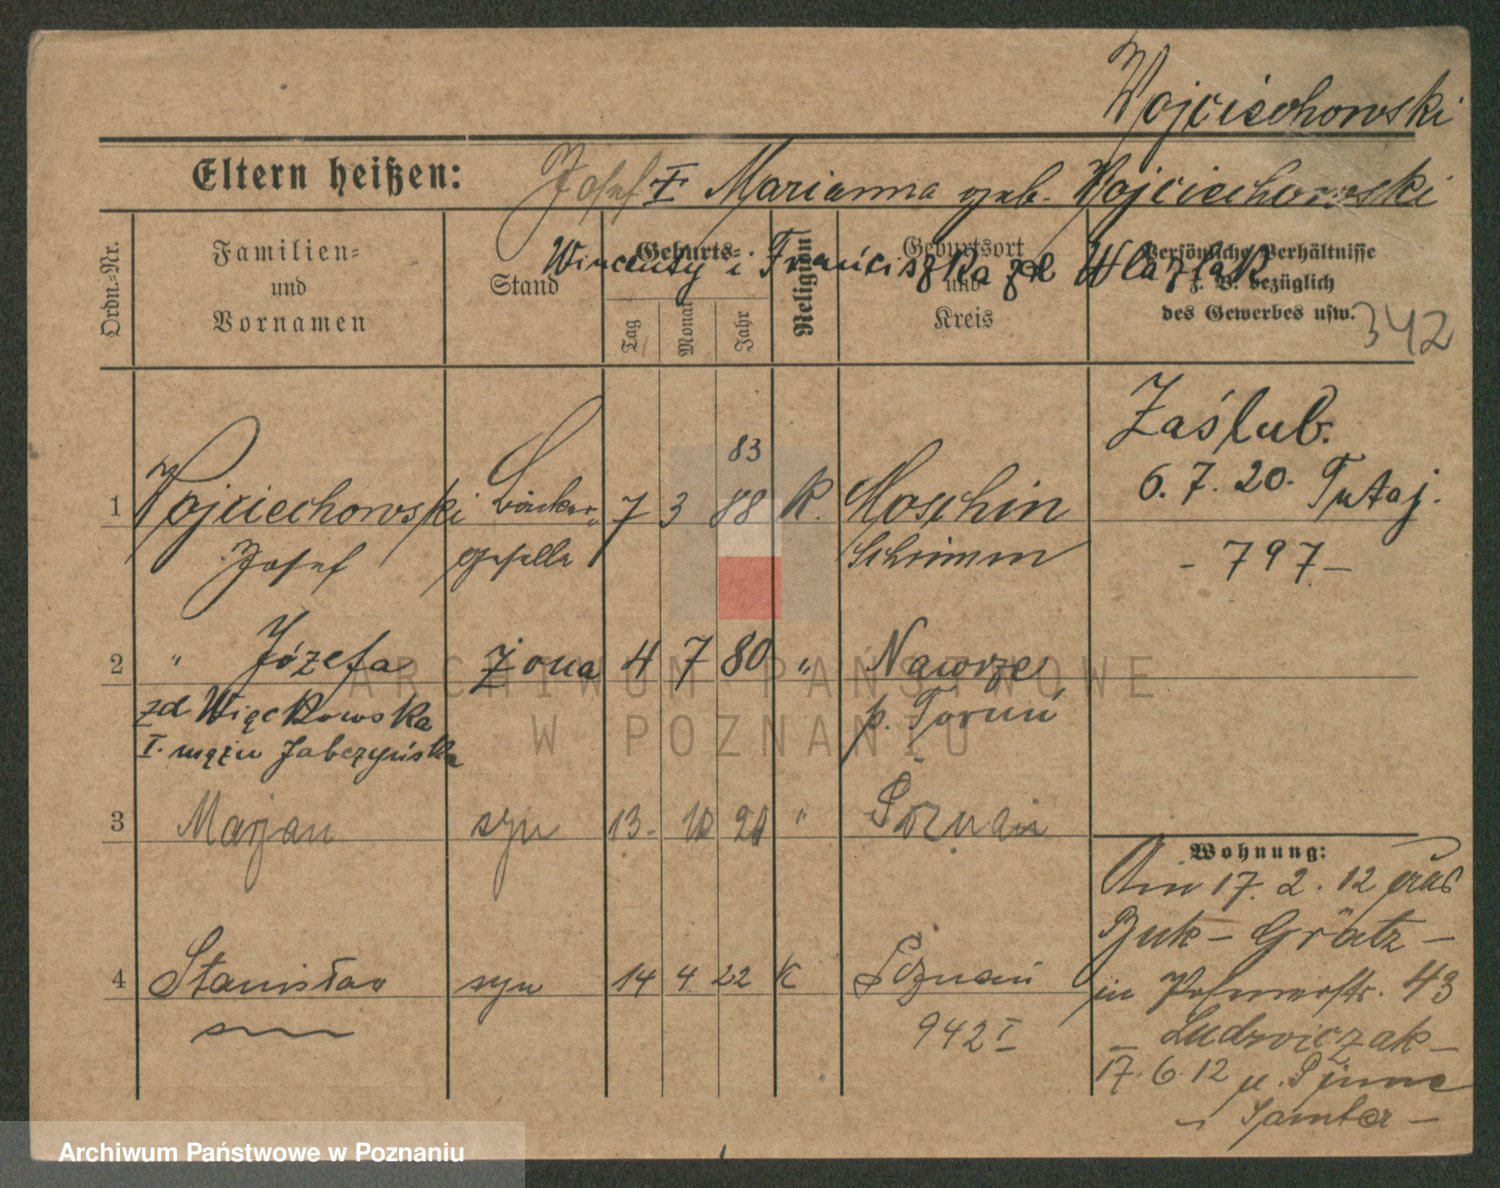 Wojciechowski
Eltern heißen: Josef I Marianna geb. Wojciechowski
Wincenty i Franciszka zd Wlazlak
Ordn.-Nr.
Familien- und Vornamen
Stand
Geburts-
Tag Monat Jahr
Religion
Geburtsort und Kreis
Persönliche Verhältnisse z. B. bezüglich des Gewerbes usw.
342
Zaślub.
6. 7. 20. Tutaj.
- 797 -
83
1 Wojciechowski Bäcker- 7 3 88 K. Moschin
Josef geselle Schrimm
2 " Józefa żona 4 7 80 " Nawrze
zd Więckowska p. Toruń
I. mężu Jabczyńska
3 Marjan syn 13. 10 20 " Poznań
4 Stanisław syn 14 4 22 K Poznań
942 I
Wohnung:
Am 17. 2. 12 aus
Buk - Grätz -
in Posenerstr. 43
- Ludwiczak -
17. 6. 12 n. Pinne
- Samter -
ARCHIWUM PAŃSTWOWE
W POZNANIU
Archiwum Państwowe w Poznaniu